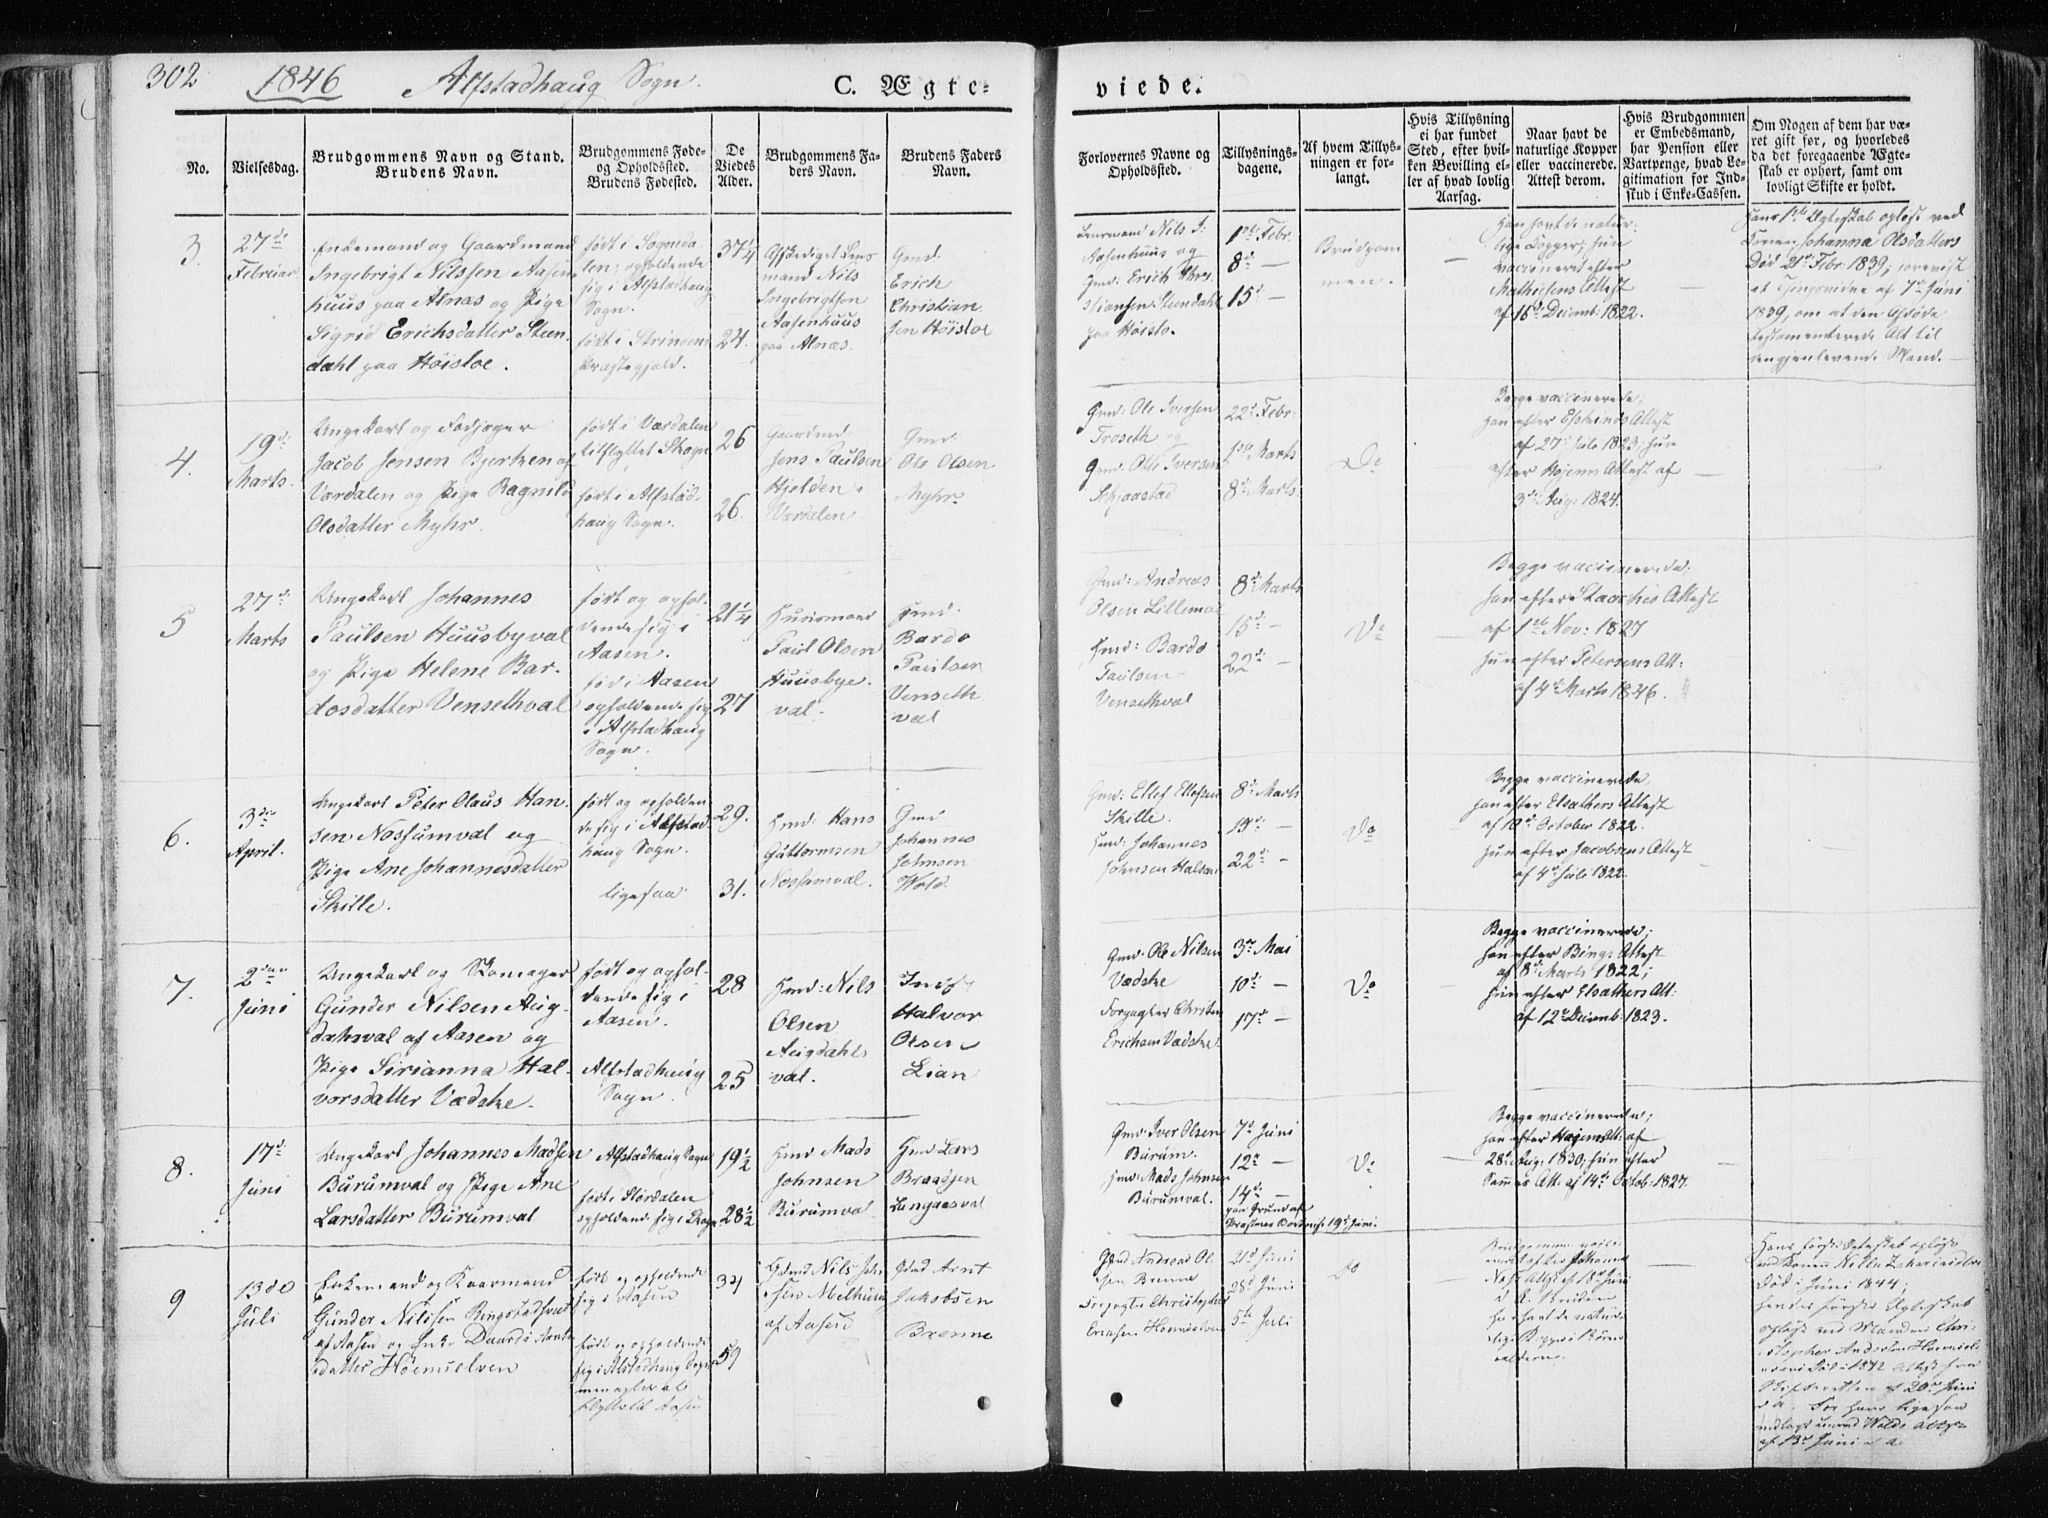 302 1846 Alfstadhaug Sogn. C. Ægte-
viede.
No.
Vielsesdag.
Brudgommens Navn og Stand.
Brudens Navn.
Brudgommens Føde-
og Opholdssted.
Brudens Fødested.
De
Viedes
Alder.
Brudgommens Fa-
ders Navn.
Brudens Faders
Navn.
Forlovernes Navne og
Opholdssted.
Tillysnings-
dagene.
Af hvem Tillys-
ningen er for-
langt.
Hvis Tillysning
ei har fundet
Sted, efter hvil-
ken Bevilling el-
ler af hvad lovlig
Aarsag.
Naar havt de
naturlige Kopper
eller vaccinerede.
Attest derom.
Hvis Brudgommen
er Embedsmand,
har Pension eller
Vartpenge, hvad Le-
gitimation for Ind-
skud i Enke-Cassen.
Om Nogen af dem har væ-
ret gift før, og hvorledes
da det foregaaende Ægte-
skab er ophørt, samt om
lovligt Skifte er holdt.
3.
27de
Februar
Enkemand og Gaardmand
Ingebrigt Nilssen Aasen-
huus paa Alnæs og Pige
Sigrid Erichsdatter Steen-
dahl paa Høisloe.
født i Sognda-
len; opholdende
sig i Alfstadhaug
Sogn.
født i Strindens
Præstegjeld.
37 1/4
24.
Afskediget Lens-
mand Nils
Ingebrigtsen
Aasenhuus
paa Alnæs.
Gmd.
Erich
Christian
sen Høisloe
Lensmand Nils I.
Aasenhuus og
Gmd. Erich Chri-
stiansen Steendahl
paa Høislo.
1ste Febr.
8de —
15de —
Brudgom
men.
Han havt de natur-
lige Kopper; hun
vaccineret efter
Mathisens Attest
af 16de Decemb: 1822.
Hans 1ste Ægteskab opløst ved
Konen Johanna Olsdatters
Død 21de Febr. 1839; forevist
1839, om at den Afdøde
testamenterede Alt til
længstlevende Mand.
4.
19de
Marts.
Ungekarl og Fodjæger
Jacob Jensen Bjerken af
Værdalen og Pige Ragnild
Olsdatter Myhr.
født i Værdalen
tilflyttet Skogn
født i Alfstad
haug Sogn.
26
26.
Gaardmd.
Jens Paulsen
Hjelden i
Værdalen
Gmd.
Ole Olsen
Myhr
Gmd: Ole Iversen
Troseth og
Gmd. Otte Iversen
Schjaastad
22de Febr.
1ste Marts
8de Marts
Do
Begge vaccinerede,
han efter Espeinds Attest
af 27de Juli 1823; hun
efter Højems Attest af
3de Aug: 1824.
5
27de
Marts
Ungekarl Johannes
Paulsen Huusbyval
og Pige Helene Bar-
dosdatter Vensethval
født og ophol-
dende sig i
Aasen.
fød i Aasen
opholdende sig
i Alfstadhaug
Sogn.
21 1/4
27
Huusmand
Paul Olsen
Huusbye-
val.
Hmd.
Bardo
Paulsen
Venseth
val
Gmd: Andreas
Olsen Lillemoe
Hmd: Bardo
Paulsen
Vensethval
8de Marts
15de —
22de —
Do
Begge vaccinerede.
af 1ste Nov: 1827
hun efter Petersens Att:
af 4de Marts 1846.
6.
3die
April.
Ungekarl Peter Olaus Han-
sen Nossumval og
Pige Ane Johannesdatter
Skille.
født og opholden
de sig i Alfstad-
haug Sogn.
ligesaa
29.
31.
Hmd: Hans
Guttormsen
Nossumval.
Gmd
Johannes
Johnsen
Wold.
Gmd: Ellef Ellefsen
Skille.
Hmd: Johannes
Johnsen Halsan
8de Marts
22de —
Do
Begge vaccinerede,
han efter Elsathers Attest
af 10de October 1822.
hun efter Jacobsens Attest
af 4de Juli 1822.
7.
2den
Juni
Ungekarl og Skomager
Gunder Nilsen Aug-
dahval af Aasen og
Pige Sirianna Hal-
vorsdatter Vædske.
født og ophol-
dende sig i
Aasen.
Alfstadhaug
Sogn.
28
25
Hmd: Nils
Olsen
Augdahls
val.
Halvor
Olsen
Lian
Gmd: Ole Nilsen
Vædske
Forpagter Christen
Erichsen Vædske
3de Mai
10de —
17de —
Do
Begge vaccinerede;
han efter Bings Attest
af 8de Marts 1822;
hun efter Elsathers Att:
af 12te Decemb: 1823.
8.
17de
Juni
Ungekarl Johannes Madsen
Burumval og Pige Ane
Larsdatter Burumval
Alfstadhaug Sogn
født i Størdalen
opholdende sig i Skogn
19 1/2
28 1/2
Hmd Mads
Johnsen
Burumval.
Hmd Lars
Braasen
Lengaasval
Gmd Iver Olsen
Burum.
Hmd. Mads Johnsen
Burumval.
7de Juni
12te —
14de —
paa Grund af
Do
Begge vaccinerede;
han efter Hojems Att: af
28de Aug: 1830; hun efter
Sammes Att. af 14de Octob: 1827.
9
13de
Juli
Enkemand og Kaarmand
Gunder Nilssen Ringstadsval
af Aasen og Enke Daardi Arnts
datter Hoemselven
født og opholdende
sig i Aasen
født og opholdende
sig i Alstadhaug Sogn
men agter at
flytte til Aasen
34
59
Gdmd Nils John
sen Melhuus
af Aasen
Gmd Arnt
Jakobsen
Brenne
Gmd Andreas Ol
sen Brenne
Forpagter Christopher
Ericsen Hoemselven
21de Juni
28de Juni
5te Juli
Do
Hans første Ægteskab opløst
ved Konen Nella Zakariasdtrs
Død i Juni 1844;
hendes første Ægteskab
opløst ved Manden Chri-
stopher Andersen Hoemsel-
vens Død i 1842
Skifteretten af 20de Juni
d. A. For ham ligesaa
af 13de Juni d. A.